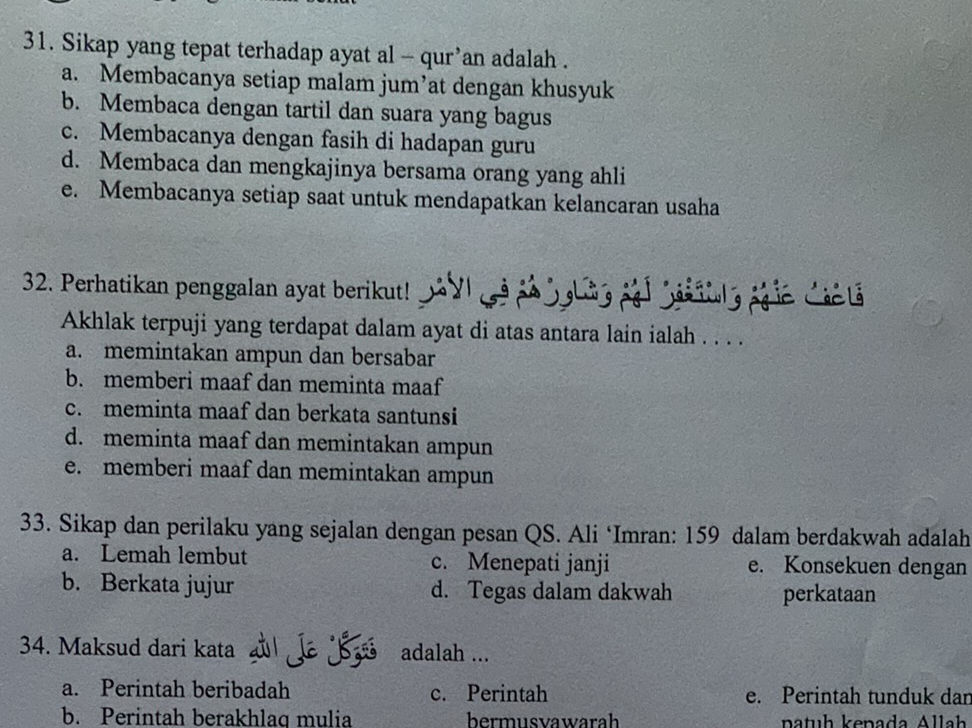 31. Sikap yang tepat terhadap ayat al – qur’an adalah .
a. Membacanya setiap malam jum’at dengan khusyuk
b. Membaca dengan tartil dan suara yang bagus
c. Membacanya dengan fasih di hadapan guru
d. Membaca dan mengkajinya bersama orang yang ahli
e. Membacanya setiap saat untuk mendapatkan kelancaran usaha
32. Perhatikan penggalan ayat berikut! فَاعْفُ عَنْهُمْ وَاسْتَغْفِرْ لَهُمْ وَشَاوِرْهُمْ فِي الأَمْرِ
Akhlak terpuji yang terdapat dalam ayat di atas antara lain ialah . . . .
a. memintakan ampun dan bersabar
b. memberi maaf dan meminta maaf
c. meminta maaf dan berkata santunsi
d. meminta maaf dan memintakan ampun
e. memberi maaf dan memintakan ampun
33. Sikap dan perilaku yang sejalan dengan pesan QS. Ali ‘Imran: 159 dalam berdakwah adalah
a. Lemah lembut
b. Berkata jujur
c. Menepati janji
d. Tegas dalam dakwah
e. Konsekuen dengan
perkataan
34. Maksud dari kata فَتَوَكَّلْ عَلَى اللهِ adalah ...
a. Perintah beribadah
b. Perintah berakhlaq mulia
c. Perintah
bermusyawarah
e. Perintah tunduk dan
patuh kepada Allah